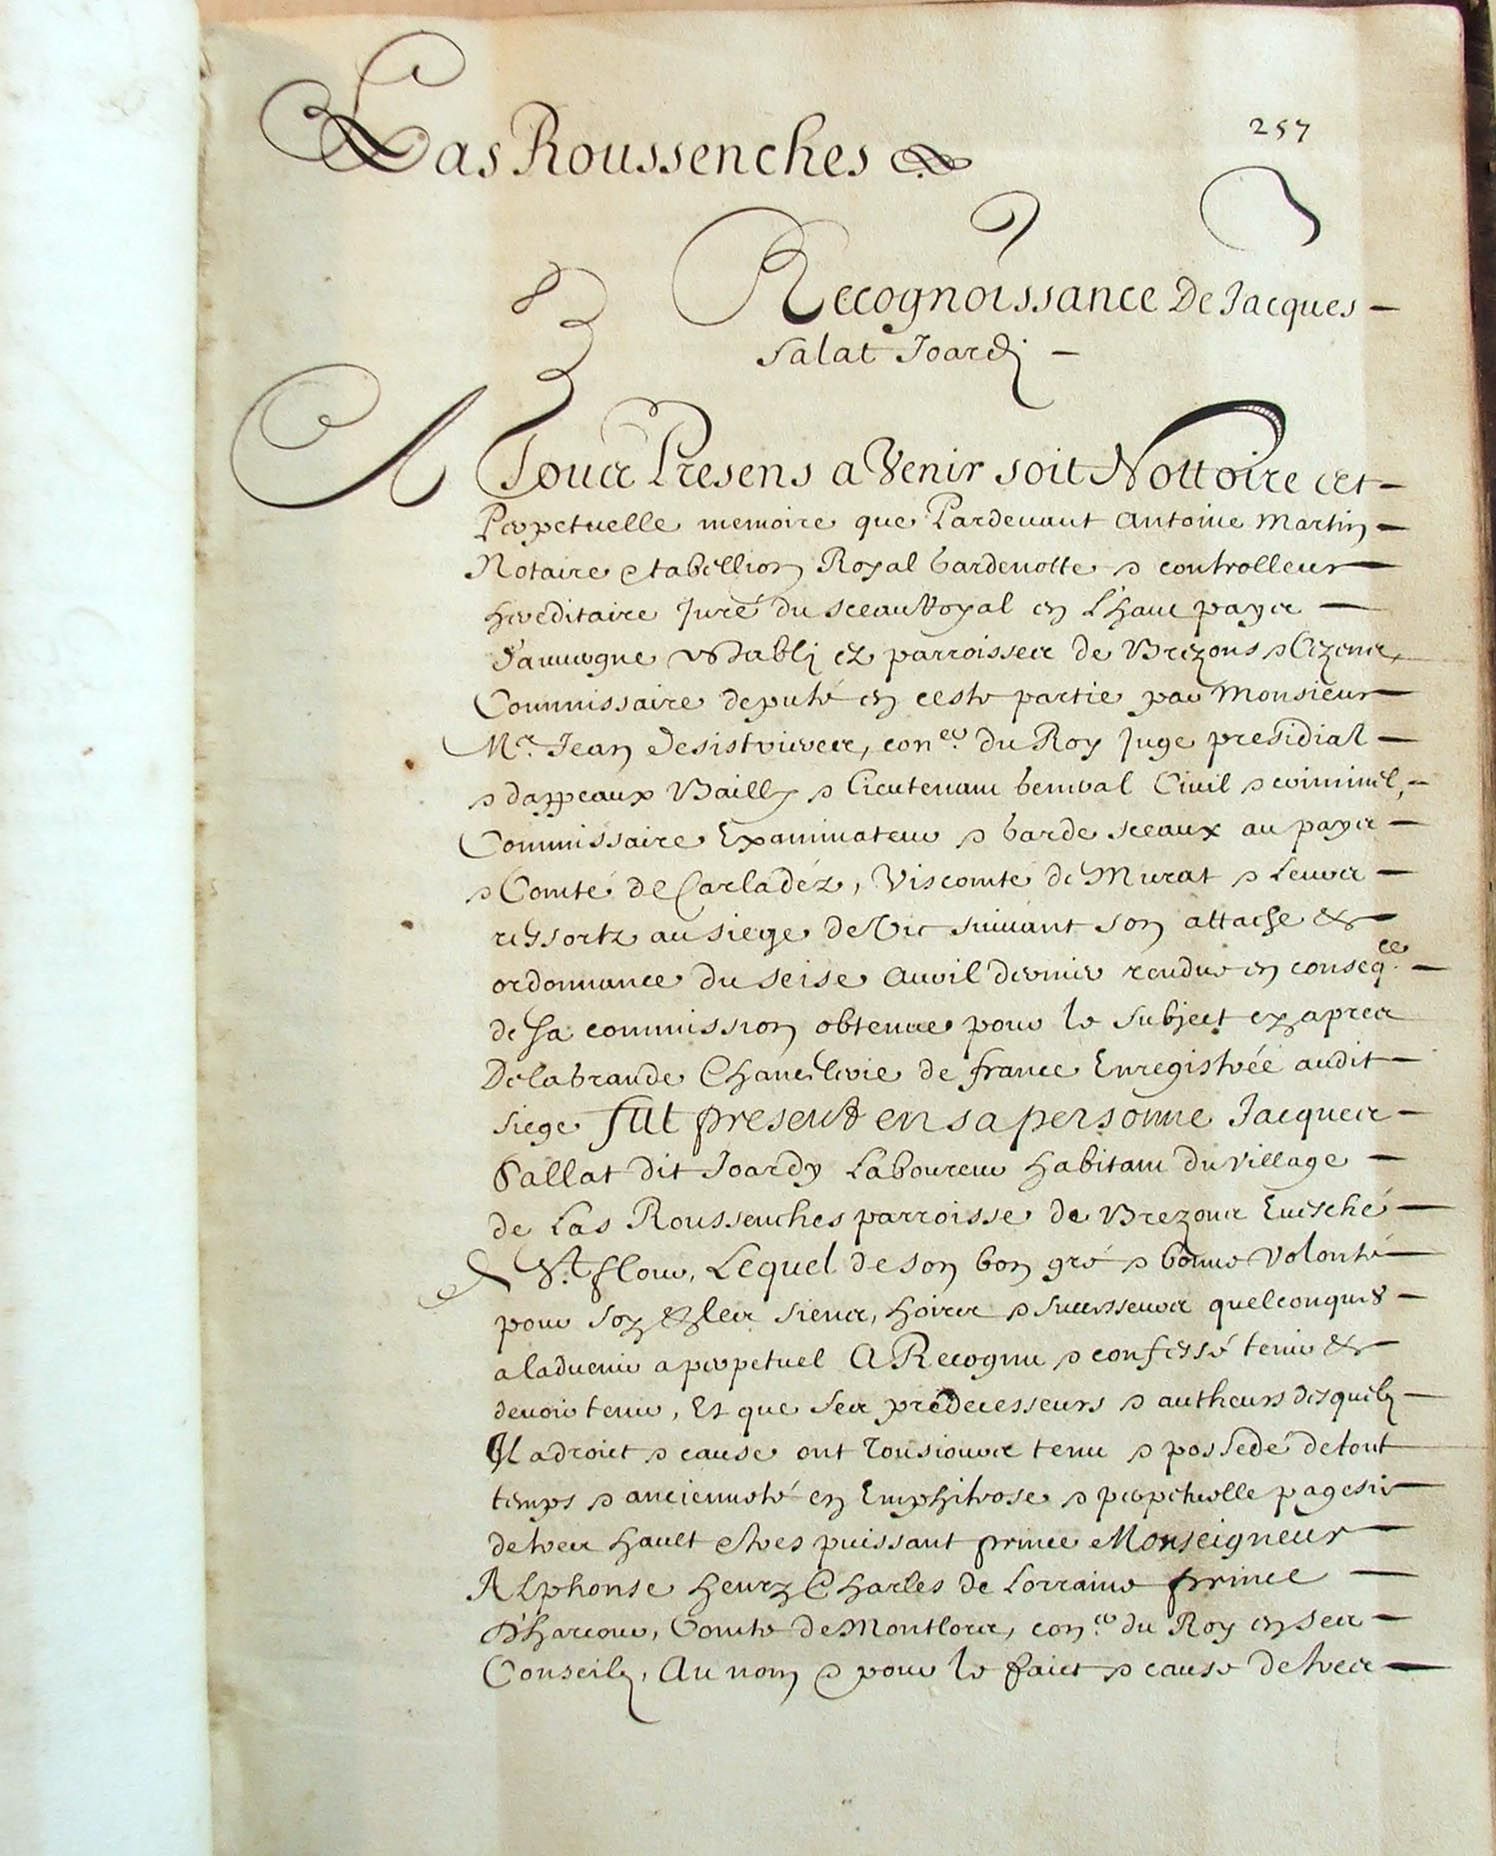 Las Roussenches
257
Recognoissance De Jacques
Salat Joardy
A Tous Presens a Venir soit Nottoire et
Perpetuelle memoire que Pardevant Antoine Martin
Notaire & tabellion Royal Gardenotte & controlleur
hereditaire Juré du sceau Royal en L'haut payes
d'auvergne establj ez parroisses de Brezons & Cezens,
Commissaire deputé en ceste partie par Monsieur
Mr. Jean Desistrieres, coner. du Roy Juge presidial
& dappeaux Bailly & Lieutenant General Civil & criminel,
Commissaire Examinateur & Garde sceaux au payes
& Comté de Carladéz, Viscomté de Murat & Leurs
ressortz au siege de Vic suivant son attache &
ordonnance du seise Avril dernier rendue en conseqce.
de sa commission obtenue pour le subject cy apres
De la grande Chancilerie de france Enregistrée audit
siege fut present en sa personne Jacques
Sallat dit Joardy Laboureur habitant du village
de Las Roussenches parroisse de Brezons Evesché
de St. flour, Lequel de son bon gré & bonne volonté
pour soy & les siens, hoirs & successeurs quelconques
a ladvenir a perpetuel A Recognu & confessé tenir &
devoir tenir, Et que ses predecesseurs & autheurs desquelz
Il a droict & cause ont Tousiours tenu & possedé de tout
temps & ancienneté en Emphiteose & perpetuelle pagesie
de tres hault & tres puissant prince Monseigneur
Alphonse henry Charles de Lorraine prince
d'harcour, Comte de Montlour, coner. du Roy en ses
Conseilz, Au nom & pour le faict & cause de tres